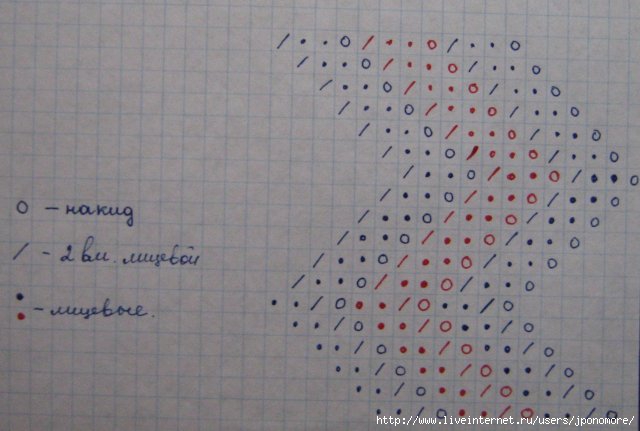 o - накид
/ - 2 вм. лицевой
• - лицевые.
http://www.liveinternet.ru/users/jponomore/